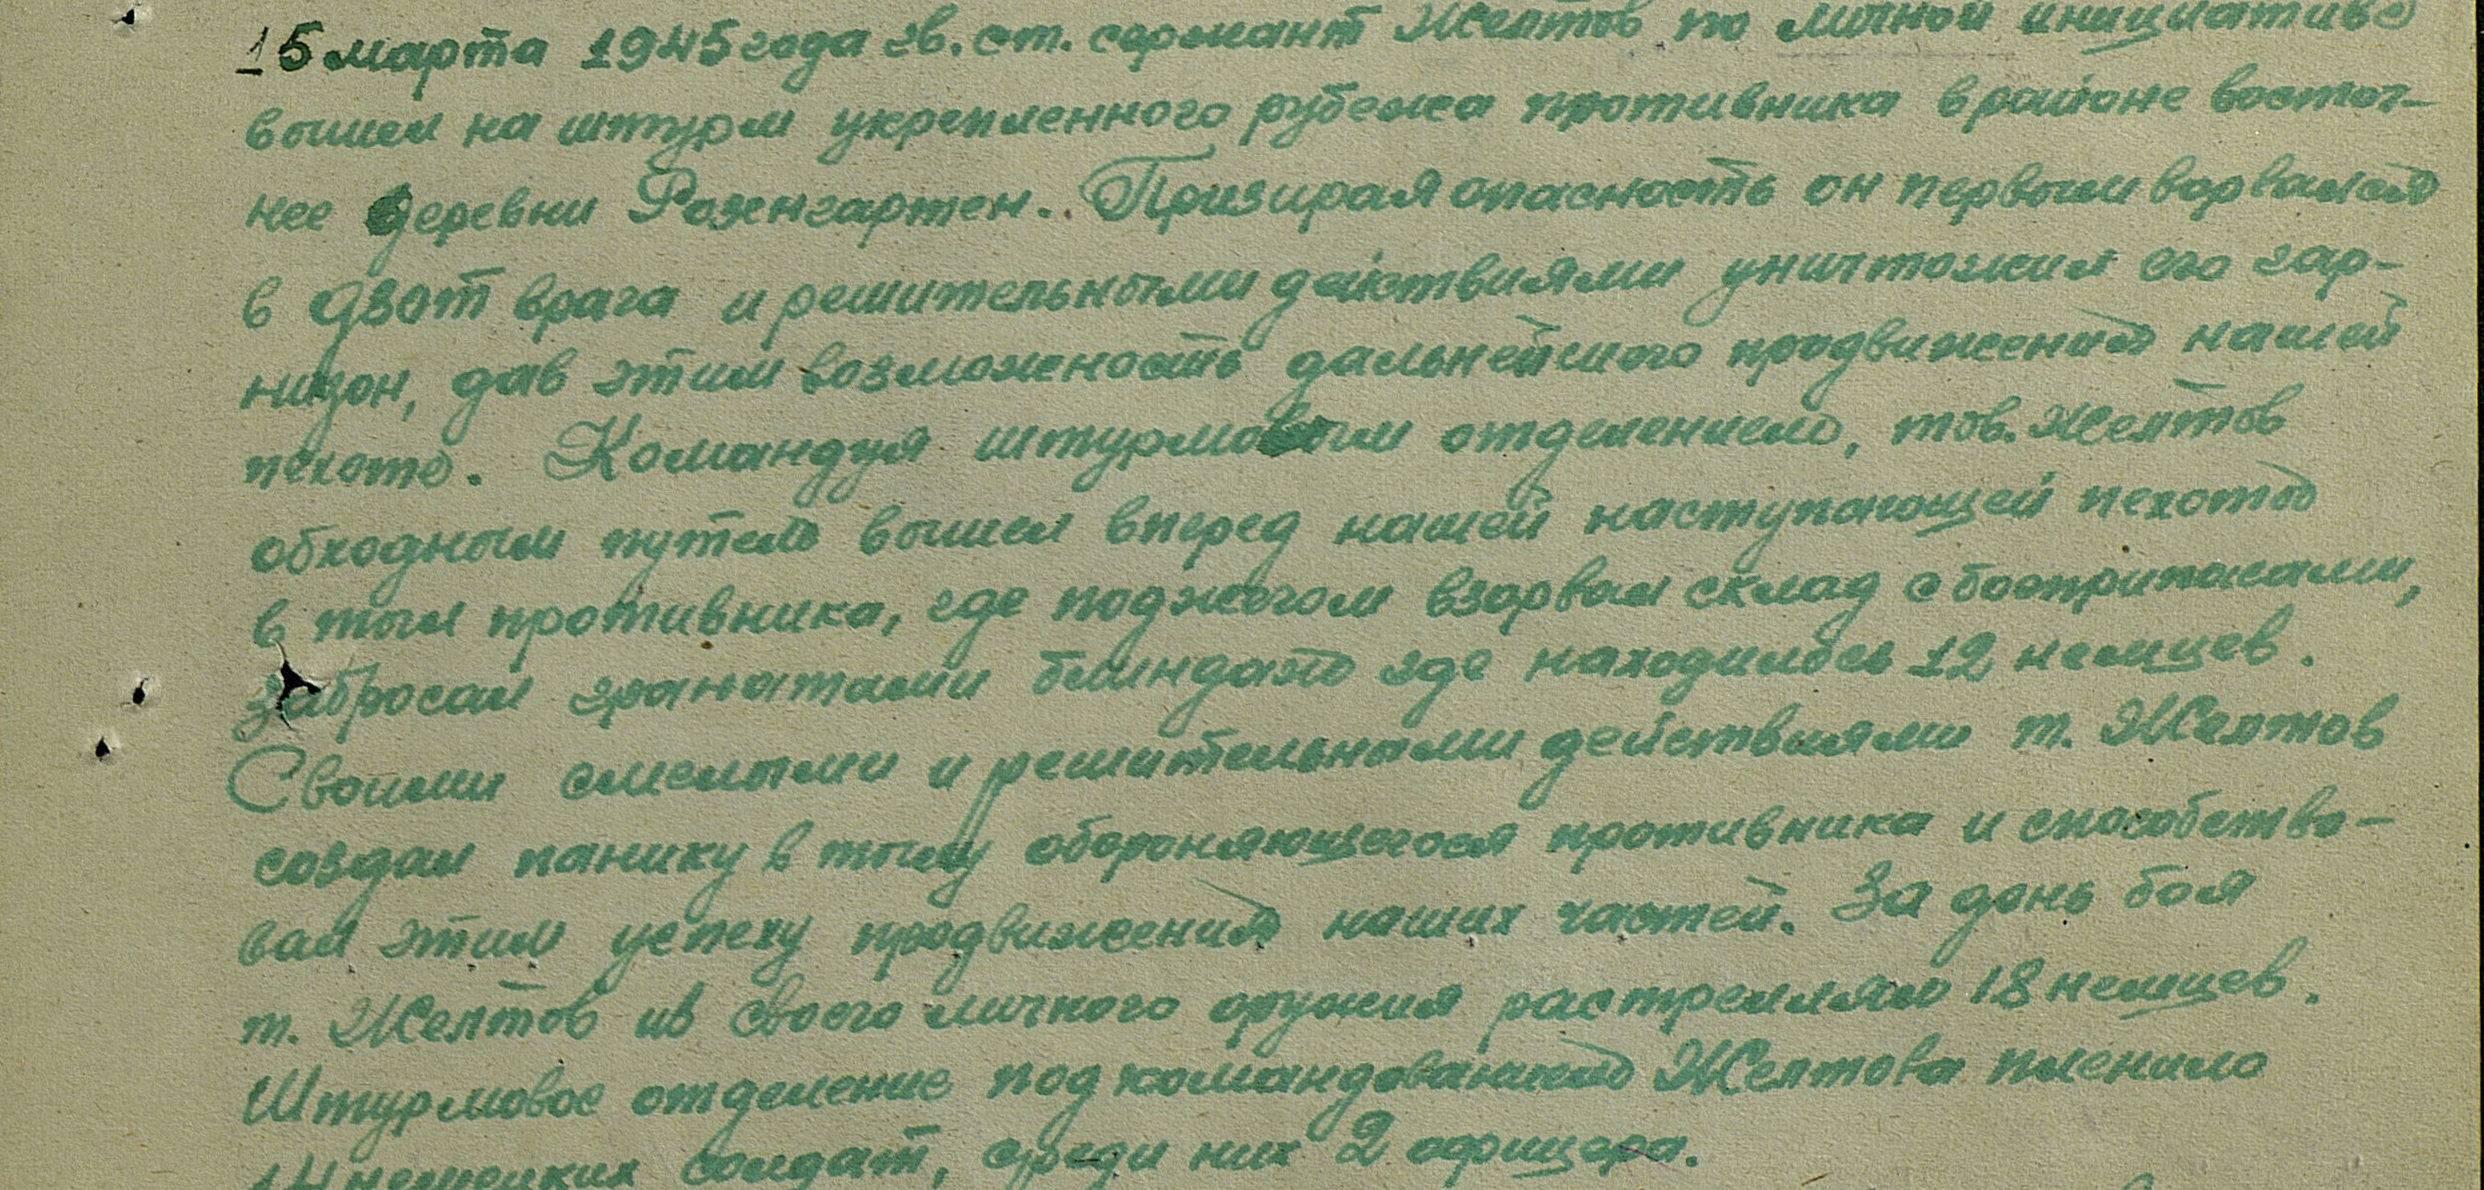 15 марта 1945 года гв. ст. сержант Желтов по личной инициативе
вышел на штурм укрепленного рубежа противника в районе восточ-
нее деревни Розенгартен. Призирая опасность он первым ворвался
в дзот врага и решительными действиями уничтожил его гар-
низон, дав этим возможность дальнейшего продвижения нашей
пехоте. Командуя штурмовым отделением, тов. Желтов
обходным путем вышел вперед нашей наступающей пехоты
в тыл противника, где поджогом взорвал склад с боеприпасами,
забросал гранатами блиндаж где находилось 12 немцев.
Своими смелыми и решительными действиями т. Желтов
создал панику в тылу обороняющегося противника и способство-
вал этим успеху продвижения наших частей. За день боя
т. Желтов из своего личного оружия растрелял 18 немцев.
Штурмовое отделение под командованием Желтова пленило
14 немецких солдат, среди них 2 офицера.